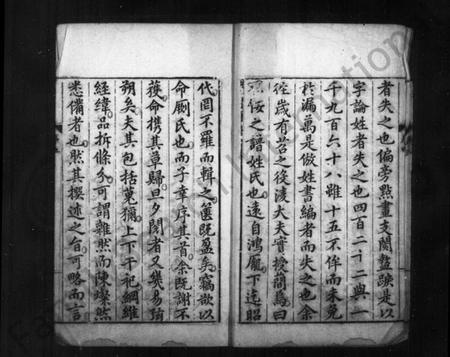 者失之也偏旁點畫支蘭盭踈是以
字論姓者失之也四百二十二與一
千九百六十八雖十五不侔而未免
於漏萬是倣姓書編者而失之也余
徃歲有
之後淩大夫實授簡焉曰
佞之譜姓氏也遠自鴻龎下迄昭
代罔不羅而輯之篋既盈矣竊欲以
命劂氏也而子幸序其首余既謝不
獲命携其草歸旦夕閱者又幾易朔
朔矣夫其包括蒐獮上下千祀綱維
經緯品拆條分可謂雜然而陳燦然
悉備者也然其撰述之㫖可略而言